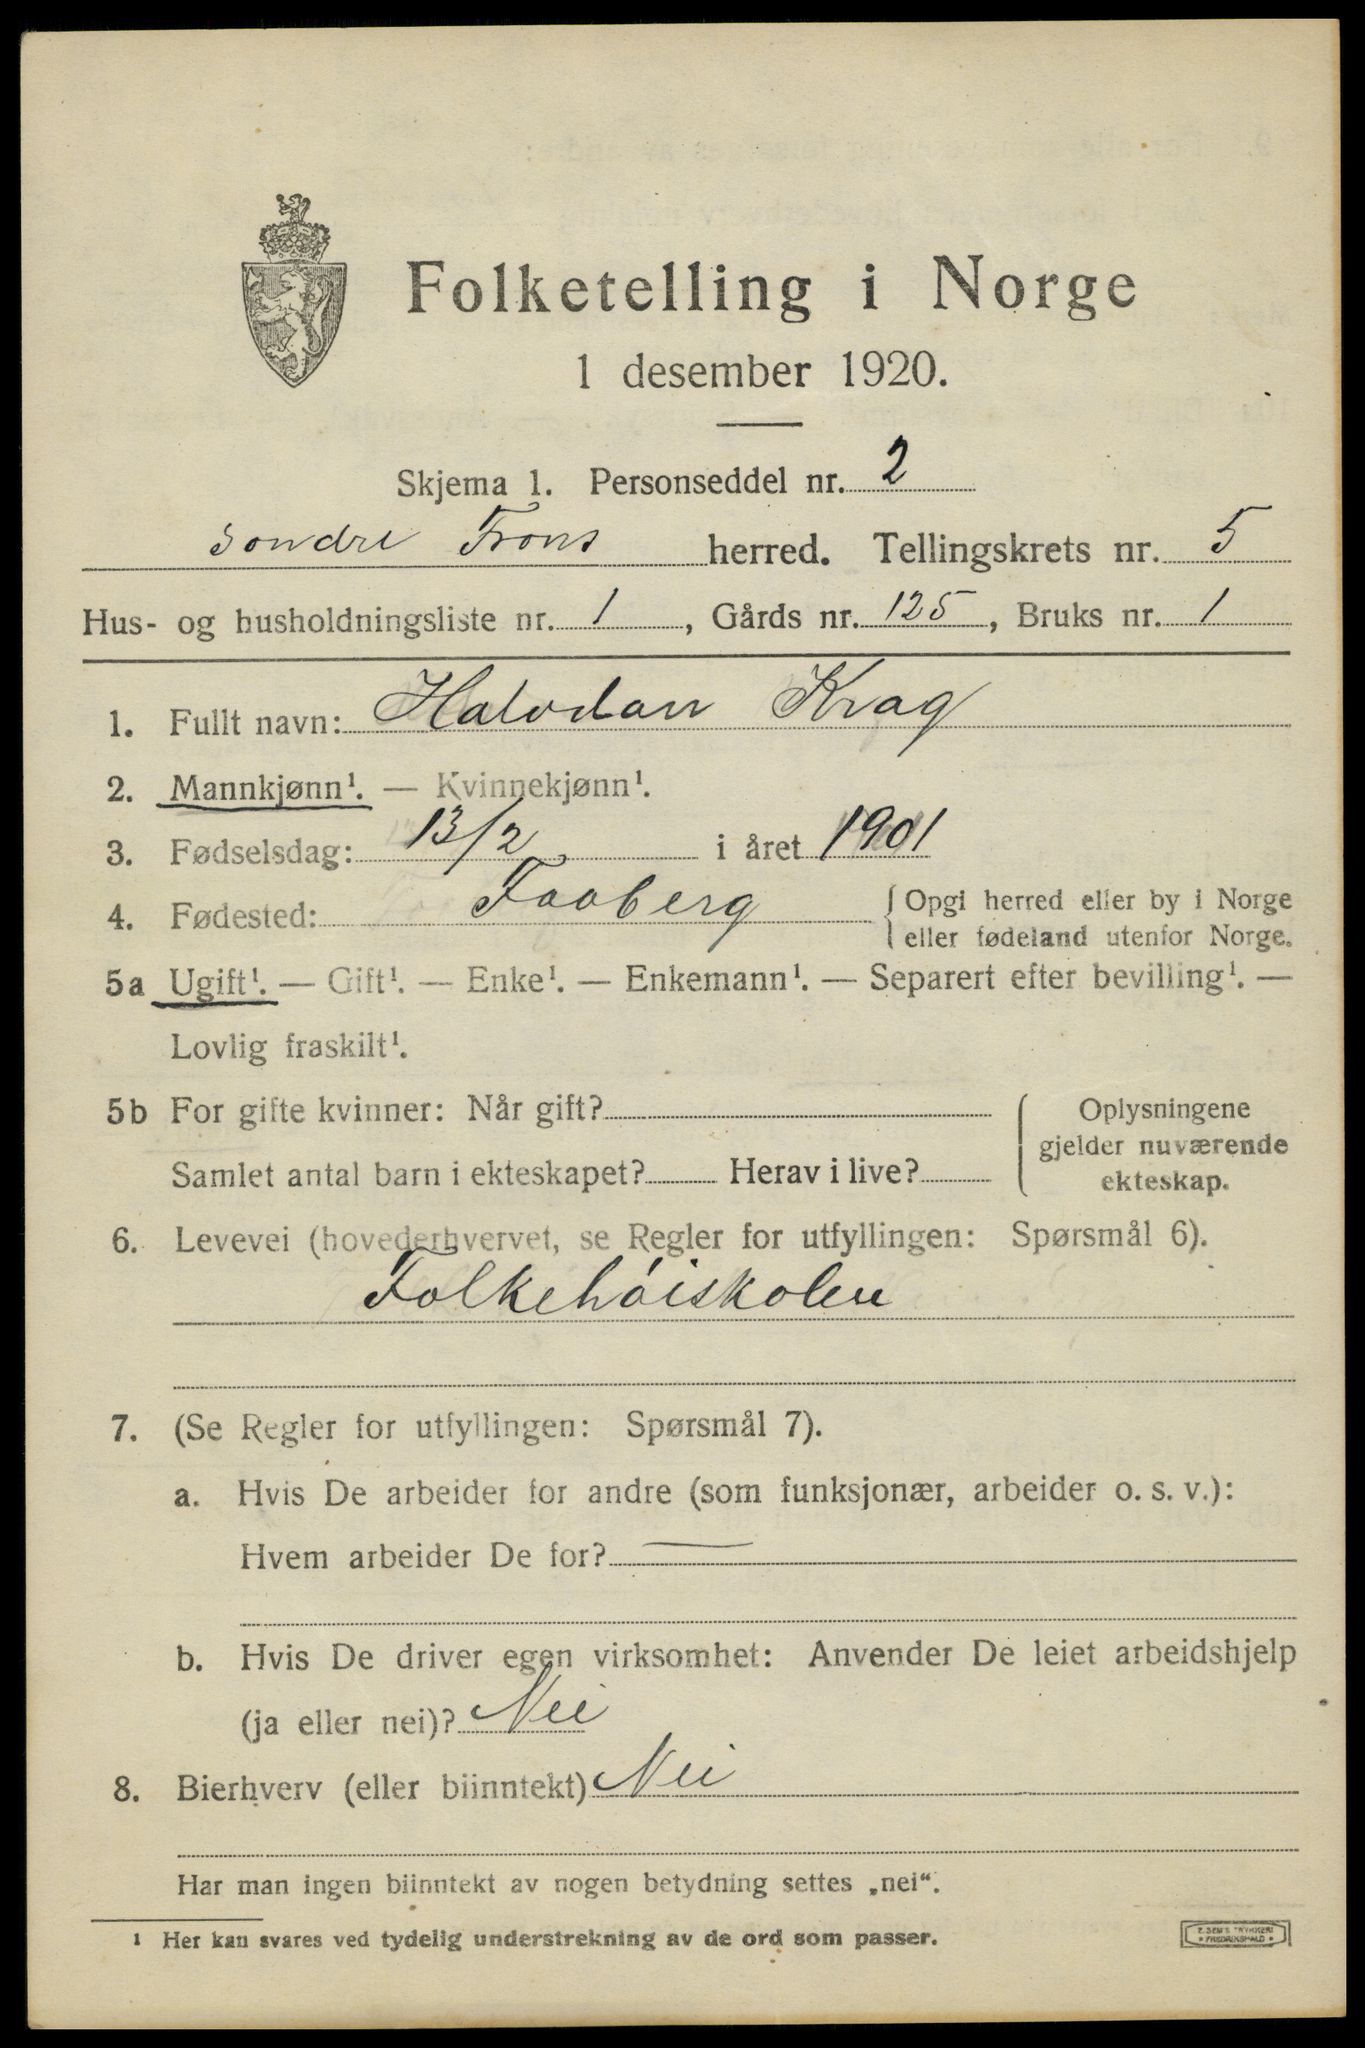 Folketelling i Norge
1 desember 1920.
Skjema 1. Personseddel nr. 2
Søndre Frons herred. Tellingskrets nr. 5
Hus- og husholdningsliste nr. 1, Gårds nr. 125, Bruks nr. 1
1. Fullt navn: Halvdan Krag
2. Mannkjønn¹. — Kvinnekjønn¹.
3. Fødselsdag: 13/2 i året 1901
4. Fødested: Faaberg { Opgi herred eller by i Norge
eller fødeland utenfor Norge.
5a Ugift¹. — Gift¹. — Enke¹. — Enkemann¹. — Separert efter bevilling¹. —
Lovlig fraskilt¹.
5b For gifte kvinner: Når gift?
Samlet antal barn i ekteskapet? Herav i live?
{ Oplysningene
gjelder nuværende
ekteskap.
6. Levevei (hovederhvervet, se Regler for utfyllingen: Spørsmål 6).
Folkehøiskolen
7. (Se Regler for utfyllingen: Spørsmål 7).
a. Hvis De arbeider for andre (som funksjonær, arbeider o. s. v.):
Hvem arbeider De for? —
b. Hvis De driver egen virksomhet: Anvender De leiet arbeidshjelp
(ja eller nei)? Nei
8. Bierhverv (eller biinntekt) Nei
Har man ingen biinntekt av nogen betydning settes „nei“.
1 Her kan svares ved tydelig understrekning av de ord som passer.
E. SEM'S TRYKKERI
FREDRIKSHALD